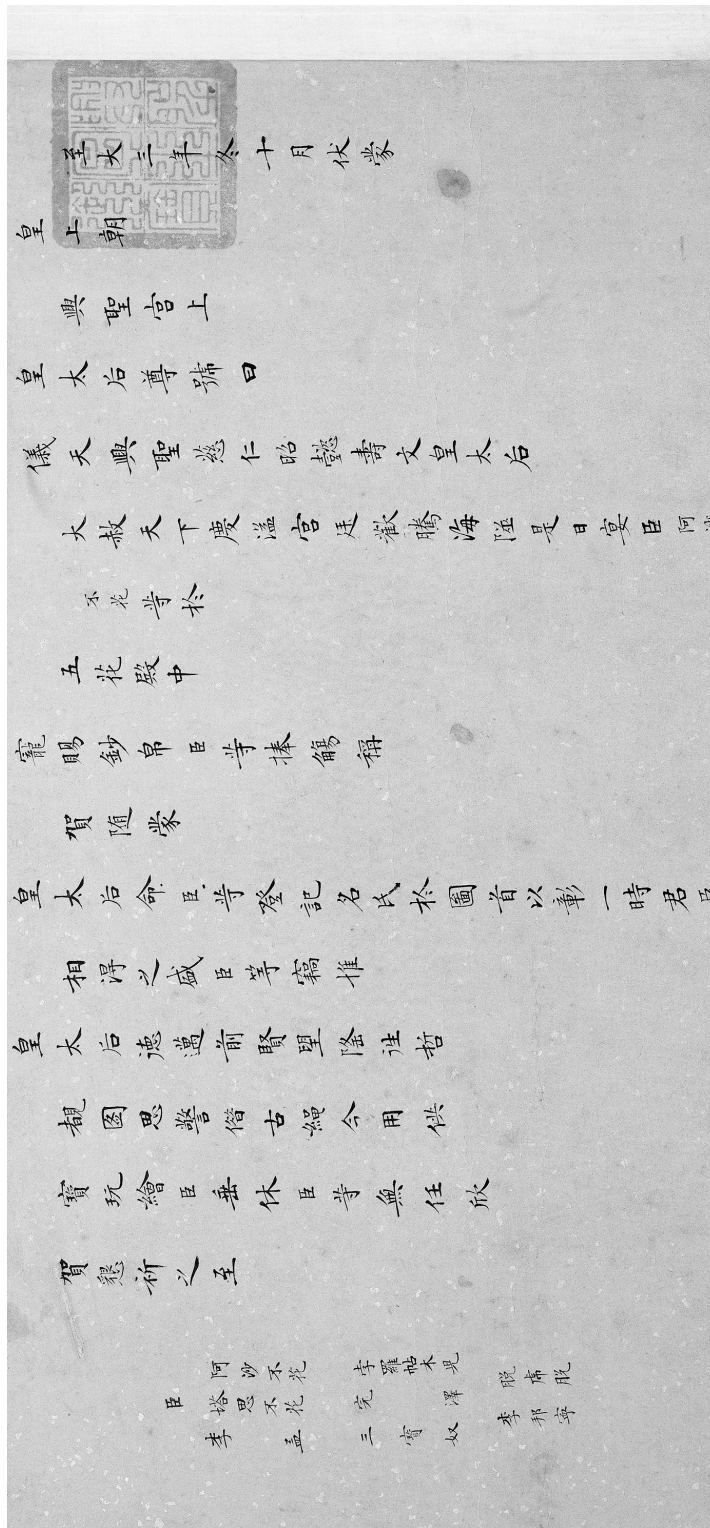 至大三年冬十月伏蒙
皇上朝
興聖宮上
皇太后尊號曰
儀天興聖慈仁昭懿壽文皇太后
大赦天下慶溢宮廷歡騰海隘是日宴臣阿沙
不花等於
五花殿中
寵賜鈔帛臣等捧觴稱
賀随蒙
皇太后命臣等登記名氏於圖首以彰一時君臣
相淂之盛臣等竊惟
皇太后德邁前賢望隆往哲
觀图思警借古繩今用供
寶玩繪臣垂休臣等無任欣
賀懇祈之至
阿沙不花 孛羅帖木兒 脱虎脱
臣 塔思不花 完澤 李邦寧
李孟 三寶奴